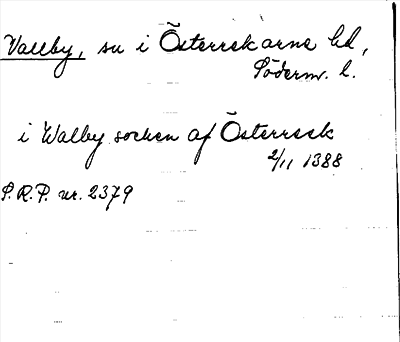 Vallby, sn i Österrekarne hd,
Söderm. l.
i Walby socken af Österreek
2/11 1388
S.R.P. nr. 2379